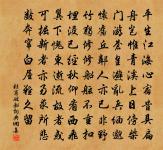 平生江海心宿昔具扁
舟豈惟青溪上日傍柴
門游蒼皇避亂兵緬邈
懷舊丘鄰人亦已非野
竹獨修修船舷不重扣
埋沒已經秋仰看西飛
翼下愧東逝流故者或
可掘新者亦易求所悲
數奔竄白屋難久留